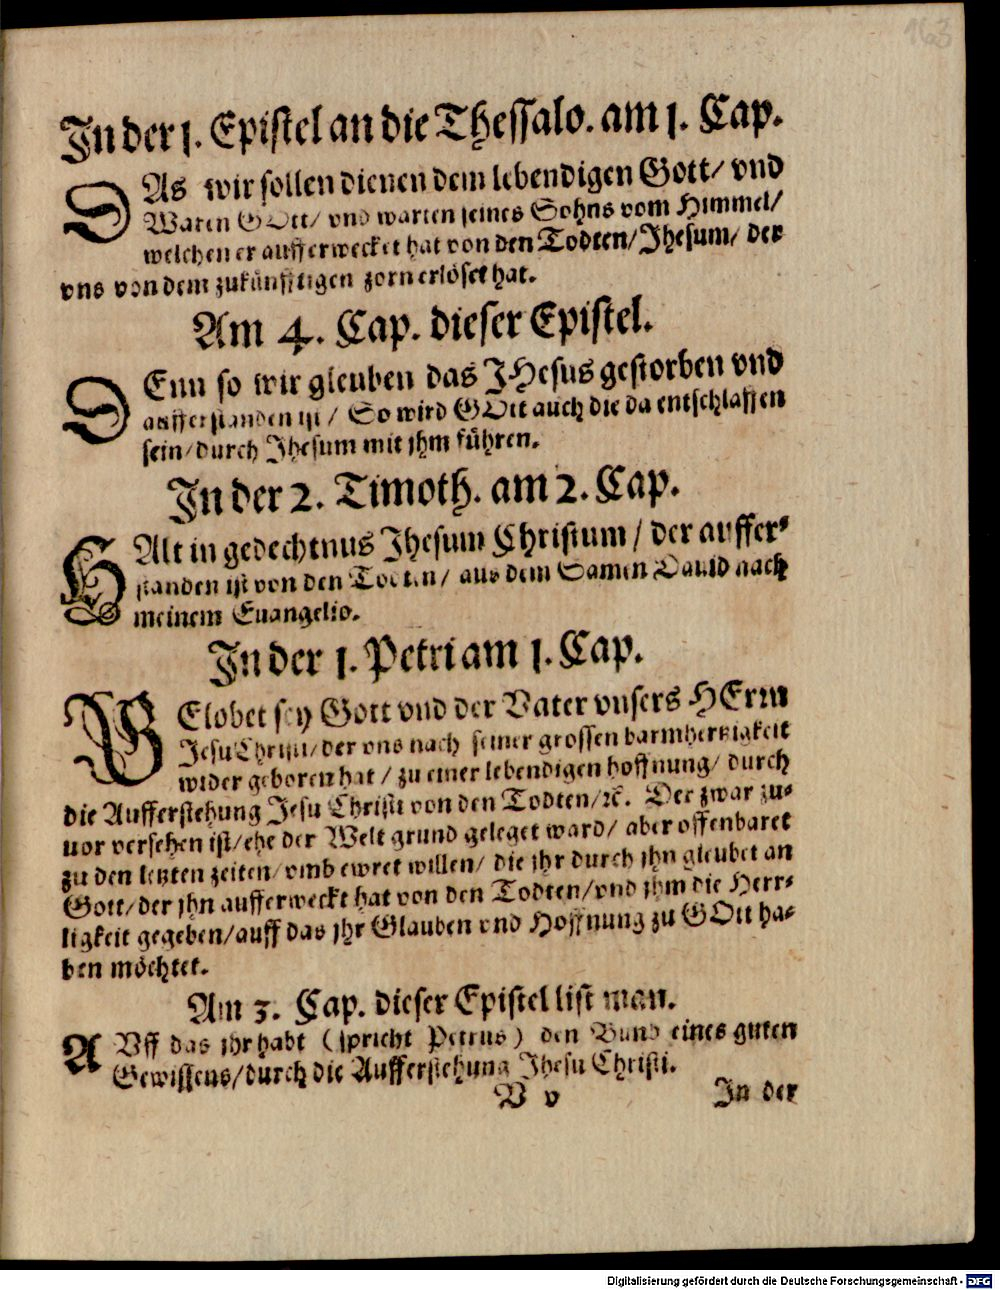 163
In der 1. Epistel an die Thessalo. am 1. Cap.
DAs wir sollen dienen dem lebendigen Gott/ vnd
Waren GOtt/ vnd warten seines Sohns vom Himmel/
welchen er aufferwecket hat von den Todten/ Jhesum/ der
vns von dem zukünfftigen zorn erlöset hat.
Am 4. Cap. dieser Epistel.
DEnn so wir gleuben das JHesus gestorben vnd
aufferstanden ist/ So wird GOtt auch die da entschlaffen
sein/ durch Jhesum mit jhm führen.
In der 2. Timoth. am 2. Cap.
HAlt in gedechtnus Jhesum Christum/ der auffer-
standen ist von den Todten/ aus dem Samen Dauid nach
meinem Euangelio.
In der 1. Petri am 1. Cap.
GElobet sey Gott vnd der Vater vnsers HErrn
Jesu Christi/ der vns nach seiner grossen barmhertzigkeit
wider geboren hat/ zu einer lebendigen hoffnung/ durch
die Aufferstehung Jesu Christi von den Todten/ ꝛc. Der zwar zu-
uor versehen ist/ ehe der Welt grund geleget ward/ aber offenbaret
zu den letzten zeiten/ vmb ewret willen/ die jhr durch jhn gleubet an
Gott/ der jhn aufferweckt hat von den Todten/ vnd jhm die Herr-
ligkeit gegeben/ auff das jhr Glauben vnd Hoffnung zu GOtt ha-
ben möchtet.
Am 3. Cap. dieser Epistel list man.
AVff das jhr habt (spricht Petrus) den Bund eines guten
Gewissens/ durch die Aufferstehung Jhesu Christi.
V v In der
Digitalisierung gefördert durch die Deutsche Forschungsgemeinschaft - DFG